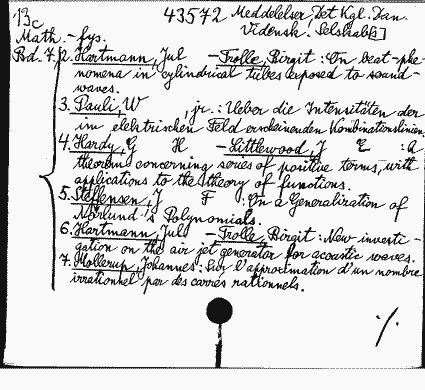 13c 43572 Meddelelser, Det Kgl. Dan.
Math.-fys. Vidensk. Selskab[s]
Bd. 7. 2. Hartmann, Jul - Trolle, Birgit : On beat-phe-
nomena in cylindrical tubes exposed to sound-
waves.
3. Pauli, W , jr. : Ueber die Intensitäten der
im elektrischen Feld erscheinenden Kombinationslinien.
4. Hardy, G H - Littlewood, J E : A
theorem concerning series of positive terms, with
applications to the theory of functions.
5. Steffensen, J F : On a Generalization of
Nörlund's Polynomials.
6. Hartmann, Jul - Trolle, Birgit : New investi-
gation on the air jet generator for acoustic waves.
7. Mollerup, Johannes : Sur l'approximation d'un nombre
irrationnel par des carrés rationnels.
./.